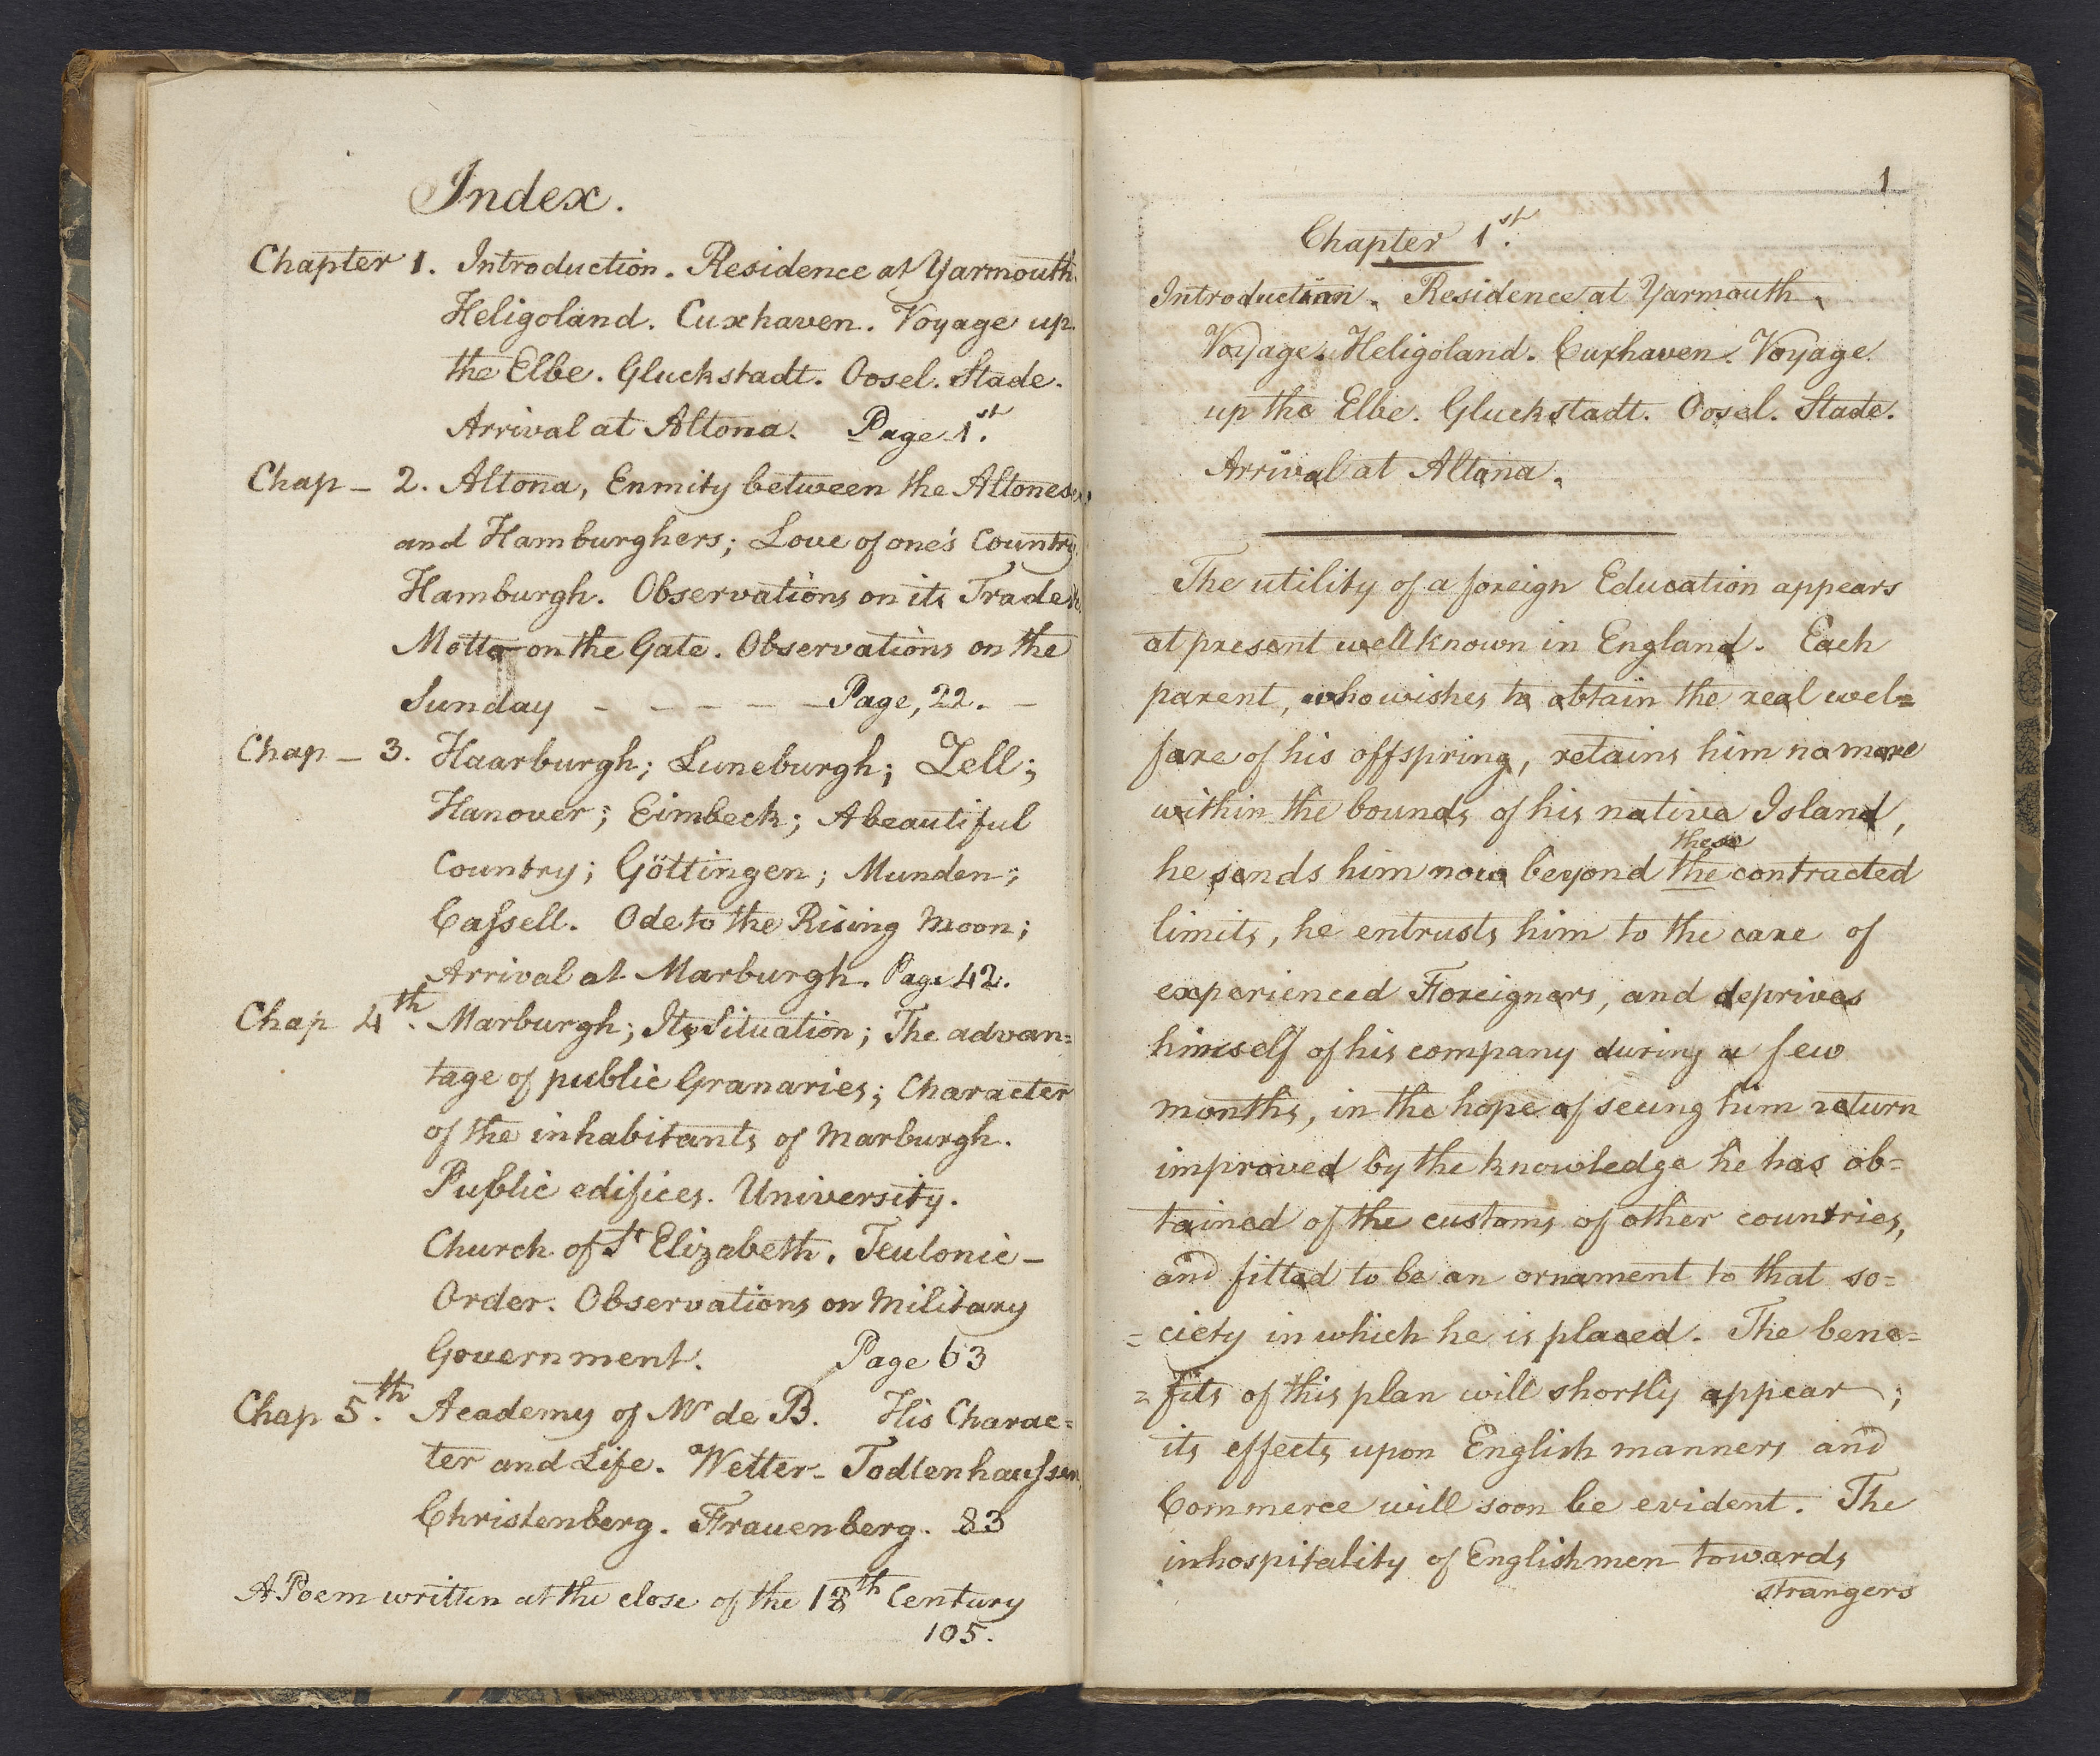 Index.
Chapter 1. Introduction. Residence at Yarmouth.
Heligoland. Cuxhaven. Voyage up
the Elbe. Gluckstadt. Oosel. Stade.
Arrival at Altona. Page 1st.
Chap – 2. Altona, Enmity between the Altonese
and Hamburghers; Love of one's Country
Hamburgh. Observations on its Trade
Motto on the Gate. Observations on the
Sunday – – – – – Page, 22. –
Chap – 3. Haarburgh; Luneburgh; Zell;
Hanover; Eimbeck; A beautiful
Country; Göttingen; Munden;
Caſsell. Ode to the Rising Moon;
Arrival at Marburgh. Page 42.
Chap 4th. Marburgh; Its Situation; The advan=
tage of public Granaries; Character
of the inhabitants of Marburgh.
Public edifices. University.
Church of St Elizabeth. Teutonic –
Order. Observations on Military
Government. Page 63
Chap 5th. Academy of Mr de B. His Charac=
ter and Life. Wetter – Todtenhauſsen
Christenberg. Frauenberg. 83
A Poem written at the close of the 18th Century
105.
1
Chapter 1st.
Introduction. Residence at Yarmouth.
Voyage. Heligoland. Cuxhaven. Voyage
up the Elbe. Gluckstadt. Oosel. Stade.
Arrival at Altona.
The utility of a foreign Education appears
at present well known in England. Each
parent, who wishes to obtain the real wel=
fare of his offspring, retains him no more
within the bounds of his native Island,
these
he sends him now beyond the contracted
limits, he entrusts him to the care of
experienced Foreigners, and deprives
himself of his company during a few
months, in the hope of seeing him return
improved by the knowledge he has ob=
tained of the customs of other countries,
and fitted to be an ornament to that so=
= ciety in which he is placed. The bene=
= fits of this plan will shortly appear;
its effects upon English manners and
Commerce will soon be evident. The
inhospitality of Englishmen towards
strangers